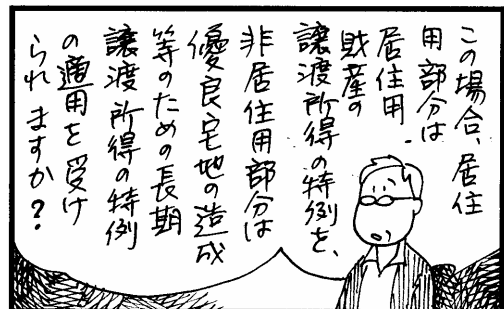 この場合、居住
用部分は
居住用
財産の
譲渡所得の特例を、
非居住用部分は
優良宅地の造成
等のための長期
譲渡所得の特例
の適用を受け
られますか？